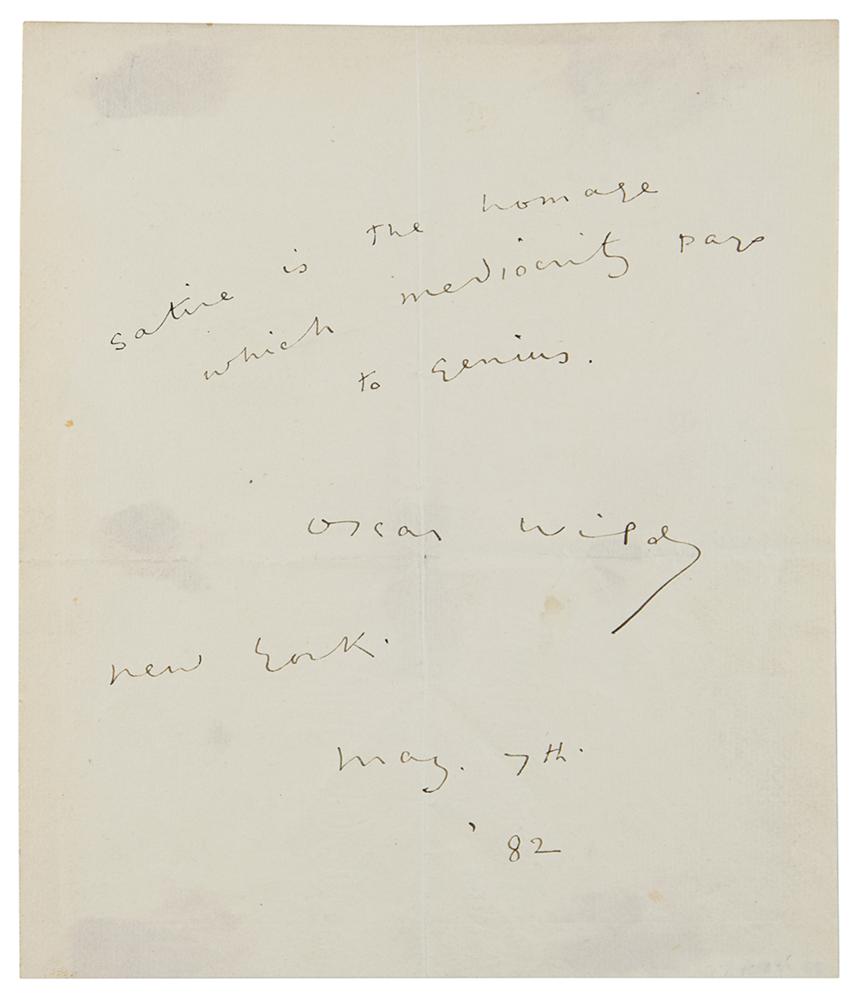 satire is the homage
which mediocrity pays
to genius.
Oscar Wilde
New York.
May. 7th.
'82